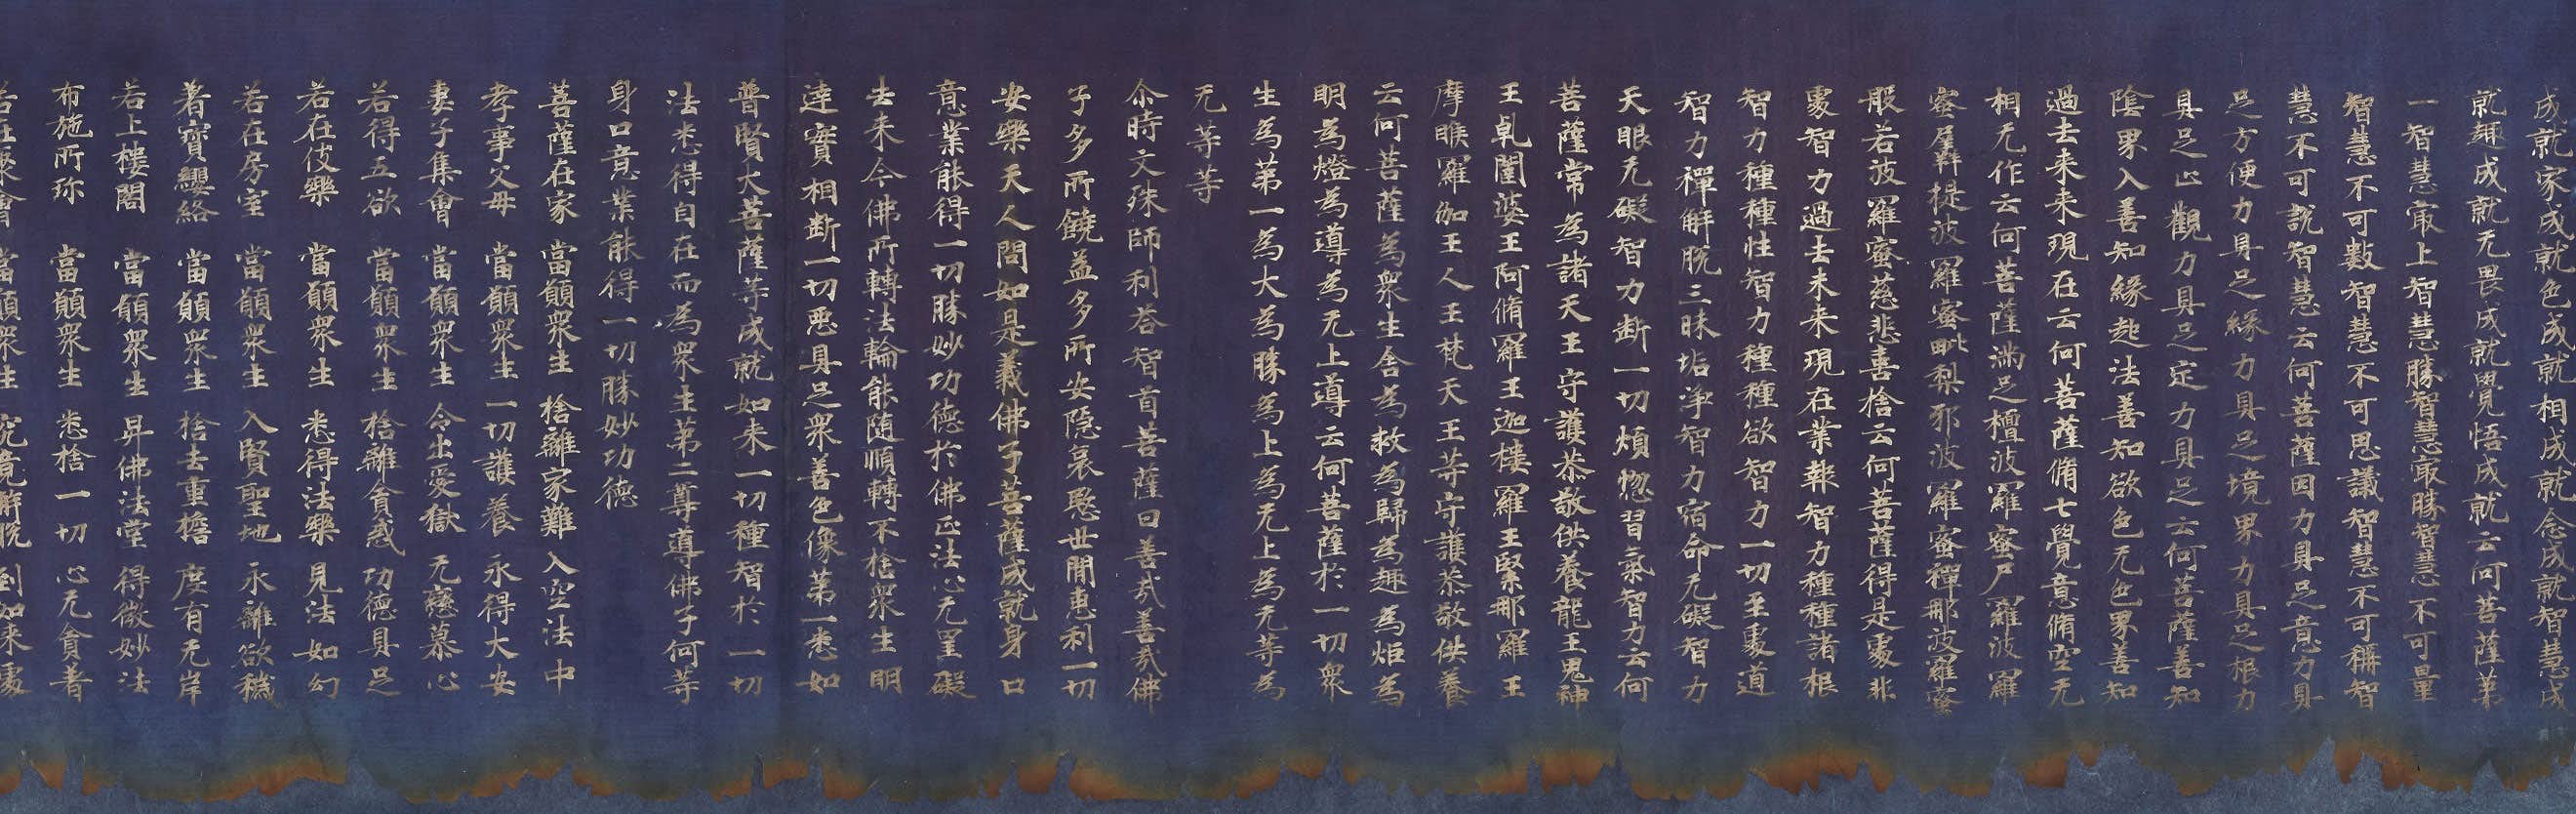 成就家成就色成就相成就念成就智慧成
就趣成就无畏成就覺悟成就云何菩薩第
一智慧冣上智慧勝智慧冣勝智慧不可量
智慧不可數智慧不可思議智慧不可稱智
慧不可說智慧云何菩薩因力具足意力具
足方便力具足緣力具足境界力具足根力
具足止觀力具足定力具足云何菩薩善知
陰界入善知緣起法善知欲色无色界善知
過去未来現在云何菩薩脩七覺意脩空无
相无作云何菩薩滿足檀波羅蜜尸羅波羅
蜜羼提波羅蜜毗梨耶波羅蜜禪那波羅蜜
般若波羅蜜慈悲喜捨云何菩薩得是處非
處智力過去未来現在業報智力種種諸根
智力種種性智力種種欲智力一切至處道
智力禪解脫三昧垢淨智力宿命无礙智力
天眼无礙智力断一切煩惱習氣智力云何
菩薩常為諸天王守護恭敬供養龍王鬼神
王乹闥婆王阿脩羅王迦樓羅王緊那羅王
摩睺羅伽王人王梵天王等守護恭敬供養
云何菩薩為衆生舍為救為歸為趣為炬為
明為燈為導為无上導云何菩薩於一切衆
生為第一為大為勝為上為无上為无等為
无等等
尒時文殊師利答智首菩薩曰善哉善哉佛
子多所饒益多所安隱哀愍世閒惠利一切
安樂天人問如是義佛子菩薩成就身口
意業能得一切勝妙功德於佛正法心无罣礙
去来今佛所轉法輪能随順轉不捨衆生明
達實相断一切惡具足衆善色像第一悉如
普賢大菩薩等成就如来一切種智於一切
法悉得自在而為衆生第二尊導佛子何等
身口意業能得一切勝妙功德
菩薩在家 當願衆生 捨離家難 入空法中
孝事父母 當願衆生 一切護養 永得大安
妻子集會 當願衆生 令出愛獄 无戀慕心
若得五欲 當願衆生 捨離貪惑 功德具足
若在伎樂 當願衆生 悉得法樂 見法如幻
若在房室 當願衆生 入賢聖地 永離欲穢
著寶纓絡 當願衆生 捨去重擔 度有无岸
若上樓閣 當願衆生 昇佛法堂 得微妙法
布施所珍 當願衆生 悉捨一切 心无貪著
若在聚會 當願衆生 究竟解脫 到如来處